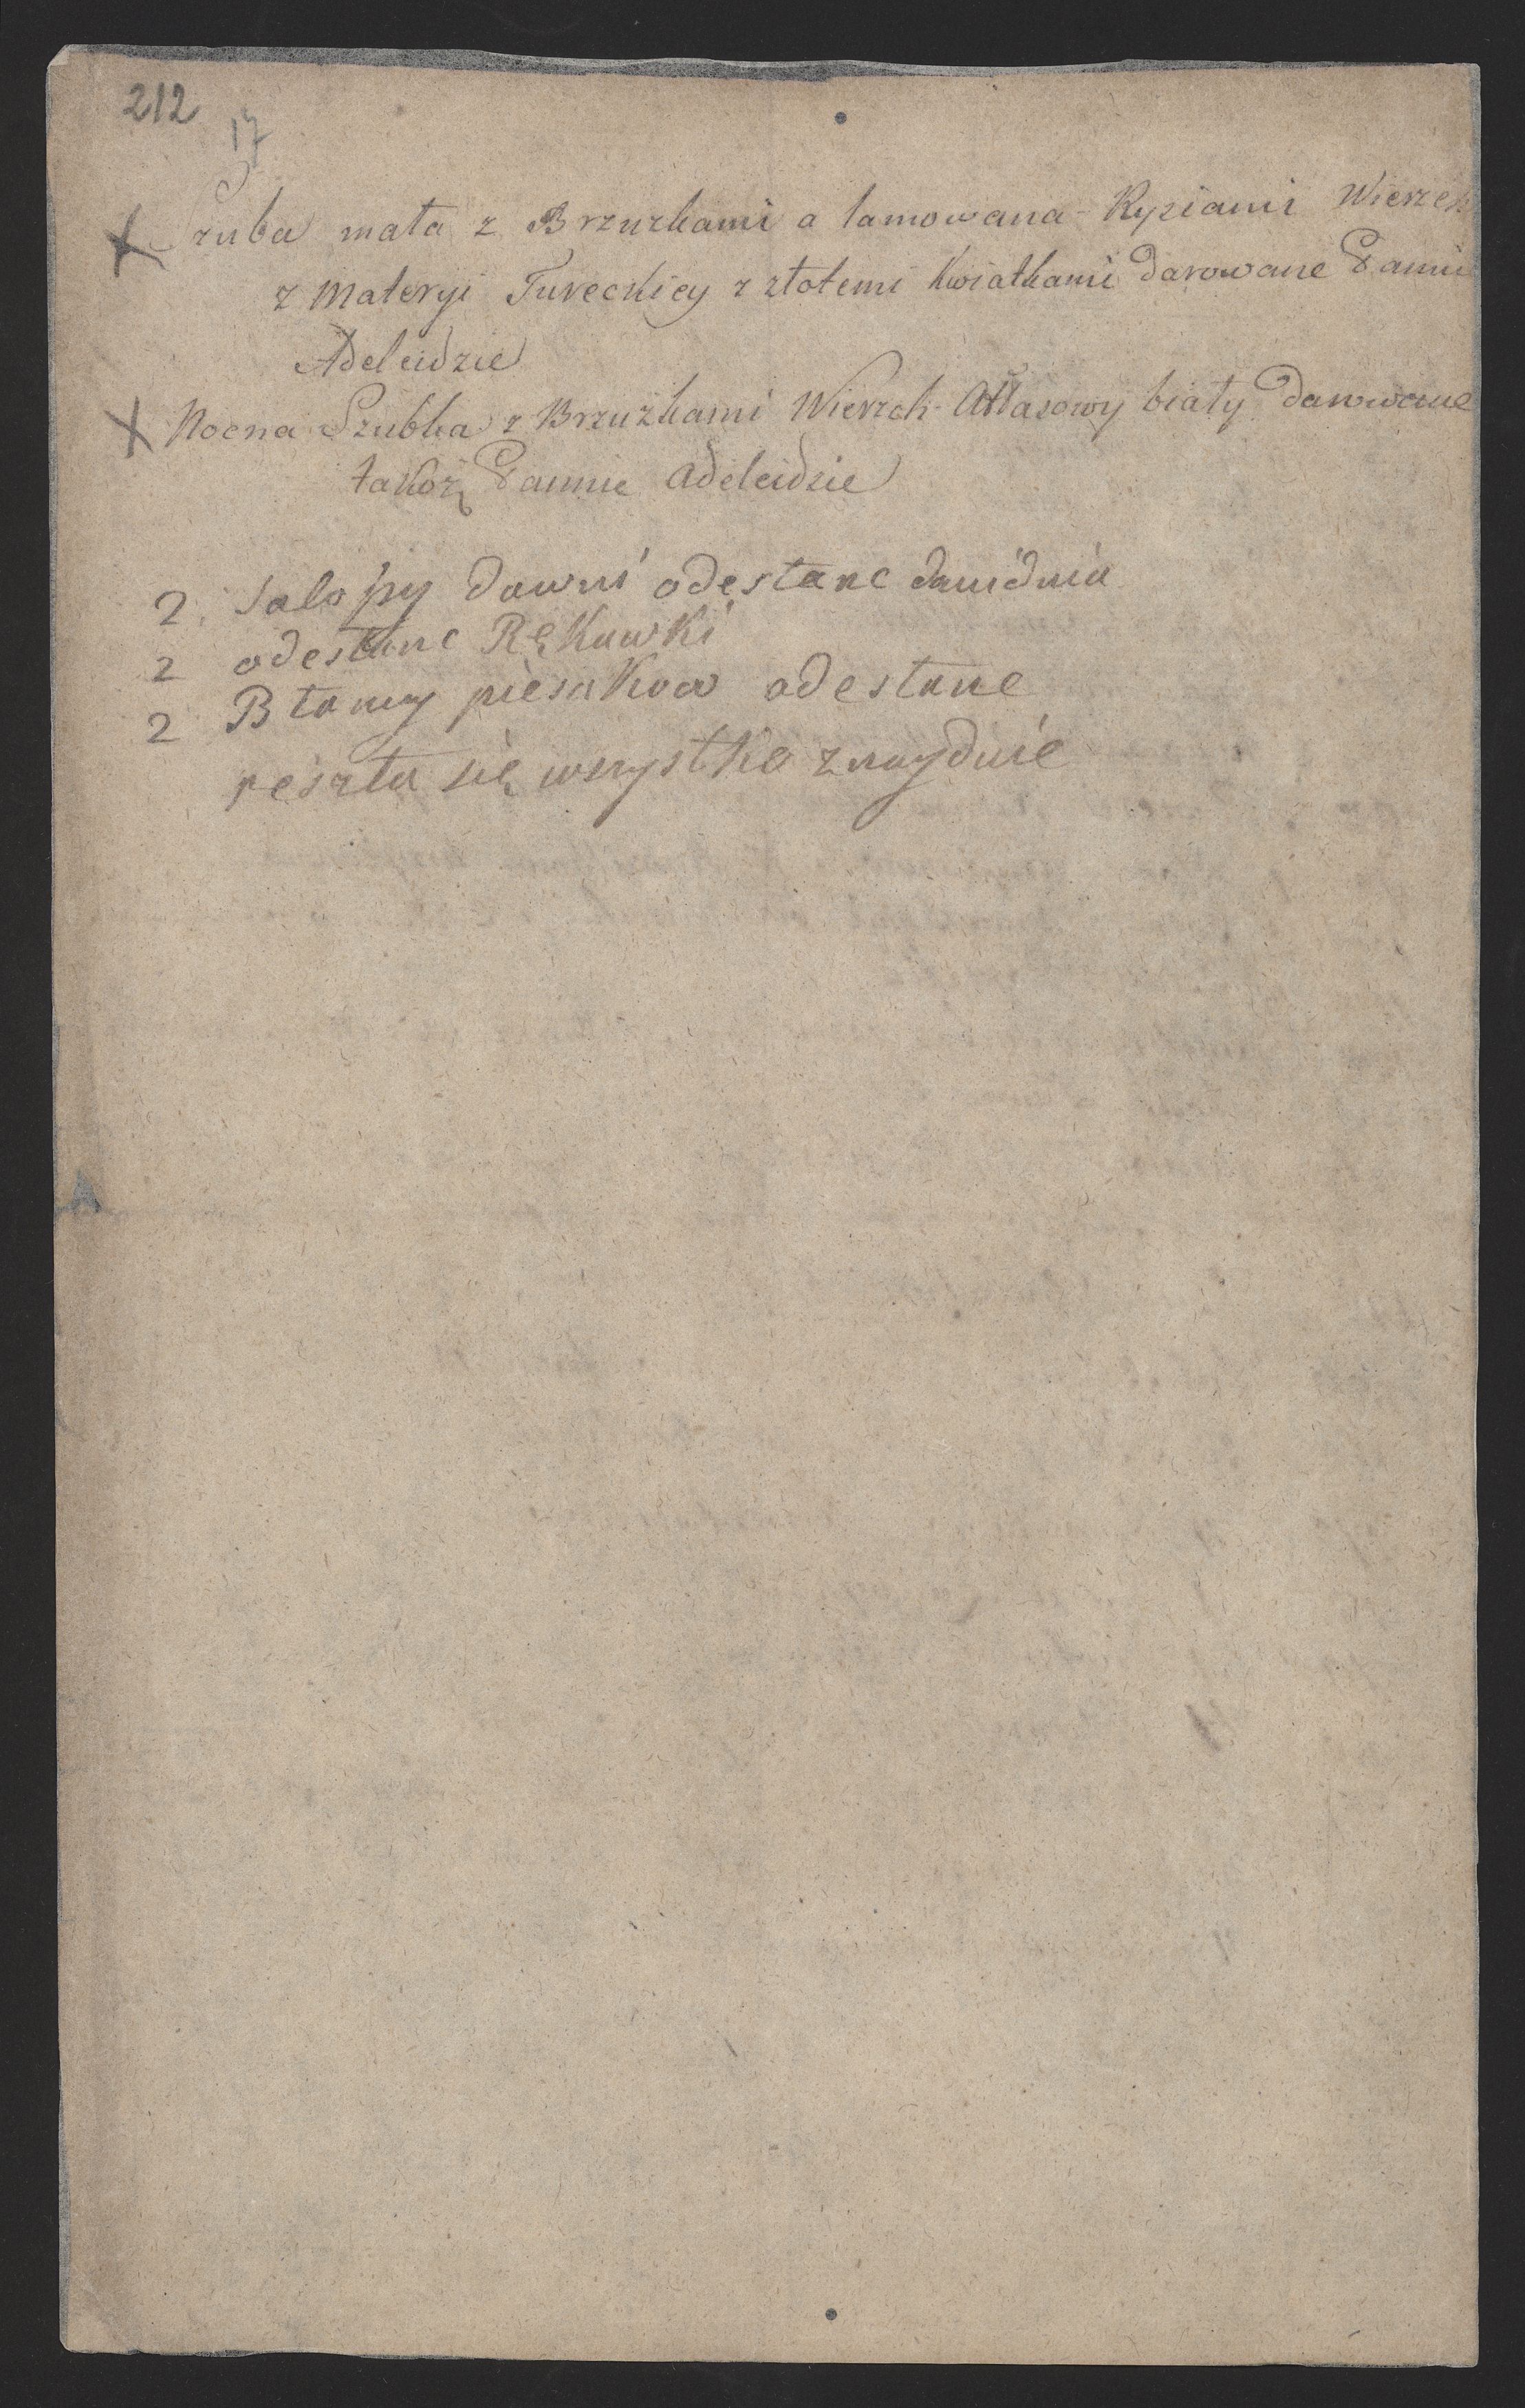 212
17
X Szuba mała z Brzuzkami a lamowana Rysiami Wierzch
z Materyi Tureckiey z złotemi Kwiatkami darowane Pannie
Adeleidzie
X Nocna Szubka z Brzuzkami Wierzch Atłasowy biały darowane
takoż Pannie Adeleidzie
2. Salopy dawni odesłane
2 odesłane Rękawki
2 Błamy piesakow odesłane
reszta się wszystko znayduie